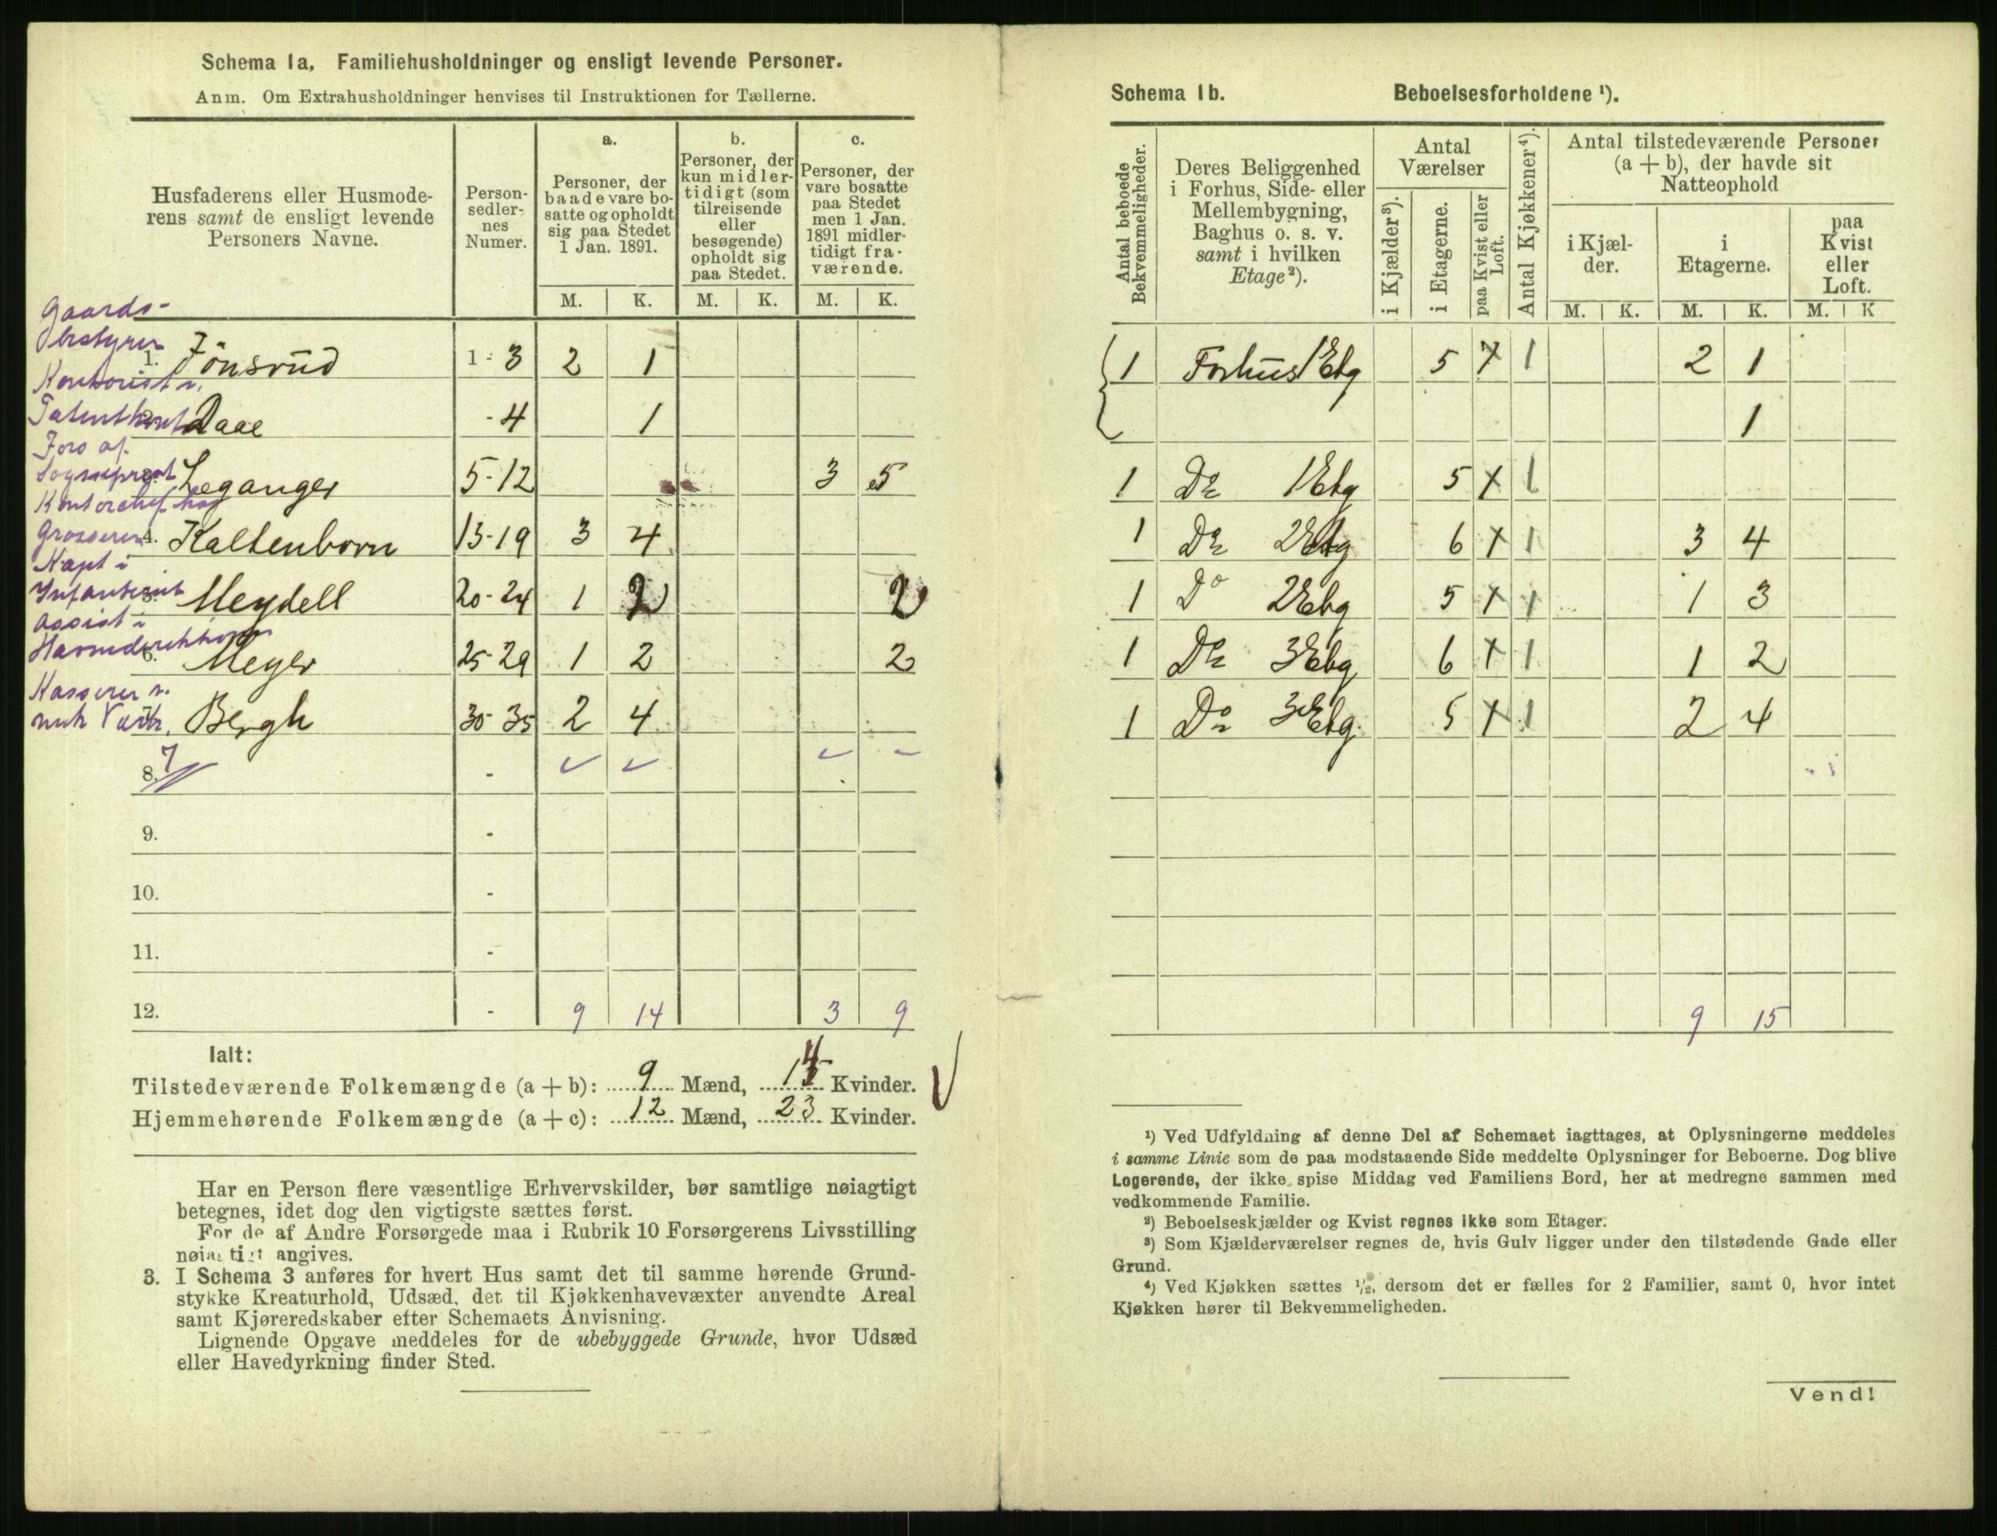 Schema 1a, Familiehusholdninger og ensligt levende Personer.
Anm. Om Extrahusholdninger henvises til Instruktionen for Tællerne.
Husfaderens eller Husmoderens samt de ensligt levende Personers Navne.
Personsedlernes Numer.
a. Personer, der baade vare bosatte og opholdt sig paa Stedet 1 Jan. 1891.
b. Personer, der kun midlertidigt (som tilreisende eller besøgende) opholdt sig paa Stedet.
c. Personer, der vare bosatte paa Stedet men 1 Jan. 1891 midlertidigt fraværende.
M. K. M. K. M. K.
Gaards-
bestyrer
1. Jönsrud 1 - 3 2 1
Kontorist i
Patentkont
2. Daae - 4 1
Fors af
Sogneprest
3. Leganger 5-12 3 5
Kontorchef hos
Grosserer
4. Kaltenborn 13-19 3 4
Kapt i
Infanteriet
5. Meydell 20-24 1 2 2
Assist i
Havnedirektionen
6. Meyer 25-29 1 2 2
Kasserer v.
mek Værk.
7. Bergh 30-35 2 4
8. 7 -
9. -
10. -
11. -
12. - 9 14 3 9
Ialt:
Tilstedeværende Folkemængde (a + b): 9 Mænd, 14 Kvinder.
Hjemmehørende Folkemængde (a + c): 12 Mænd, 23 Kvinder.
Har en Person flere væsentlige Erhvervskilder, bør samtlige nøiagtigt
betegnes, idet dog den vigtigste sættes først.
For de af Andre Forsørgede maa i Rubrik 10 Forsørgerens Livsstilling
nøiagtigt angives.
3. I Schema 3 anføres for hvert Hus samt det til samme hørende Grund-
stykke Kreaturhold, Udsæd, det til Kjøkkenhavevæxter anvendte Areal
samt Kjøreredskaber efter Schemaets Anvisning.
Lignende Opgave meddeles for de ubebyggede Grunde, hvor Udsæd
eller Havedyrkning finder Sted.
Schema 1b. Beboelsesforholdene ¹).
Antal beboede Bekvemmeligheder.
Deres Beliggenhed i Forhus, Side- eller Mellembygning, Baghus o. s. v. samt i hvilken Etage²).
Antal Værelser
i Kjælder³).
i Etagerne.
paa Kvist eller Loft.
Antal Kjøkkener⁴).
Antal tilstedeværende Personer (a + b), der havde sit Natteophold
i Kjælder.
i Etagerne.
paa Kvist eller Loft.
M. K. M. K. M. K
1 Forhus 1 Etg 5 x 1 2 1
1
1 Do 1 Etg 5 x 1
1 Do 2 Etg 6 x 1 3 4
1 Do 2 Etg 5 x 1 1 3
1 Do 3 Etg 6 x 1 1 2
1 Do 3 Etg. 5 x 1 2 4
9 15
¹) Ved Udfyldning af denne Del af Schemaet iagttages, at Oplysningerne meddeles
i samme Linie som de paa modstaaende Side meddelte Oplysninger for Beboerne. Dog blive
Logerende, der ikke spise Middag ved Familiens Bord, her at medregne sammen med
vedkommende Familie.
²) Beboelseskjælder og Kvist regnes ikke som Etager.
³) Som Kjælderværelser regnes de, hvis Gulv ligger under den tilstødende Gade eller
Grund.
⁴) Ved Kjøkken sættes ½, dersom det er fælles for 2 Familier, samt 0, hvor intet
Kjøkken hører til Bekvemmeligheden.
Vend!